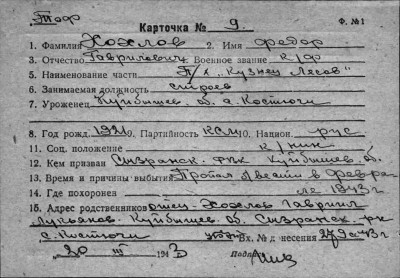 Ф. №1
Карточка № 9.
1. Фамилия Хохлов 2. Имя федор
3. Отчество Гаврилович Военное звание к/ф
5. Наименование части П/х "Кузнец Лесов"
6. Занимаемая должность строев
7. Уроженец Куйбышев. об. с. Костычи
8. Год рожд. 1921 9. Партийность ксм 10. Национ. рус
11. Соц. положение
12. Кем призван Сызранск. РВК Куйбышев. об.
13. Время и причины выбытия Пропал б/вести в февра-
14. Где похоронен ле 1943 г
15. Адрес родственников отец-Хохлов Гавриил
Лукьянов. Куйбышев. об. Сызранск. р-н
с. Костычи Вх. № донесения 279с 43 г
20 III 1943 Подпись